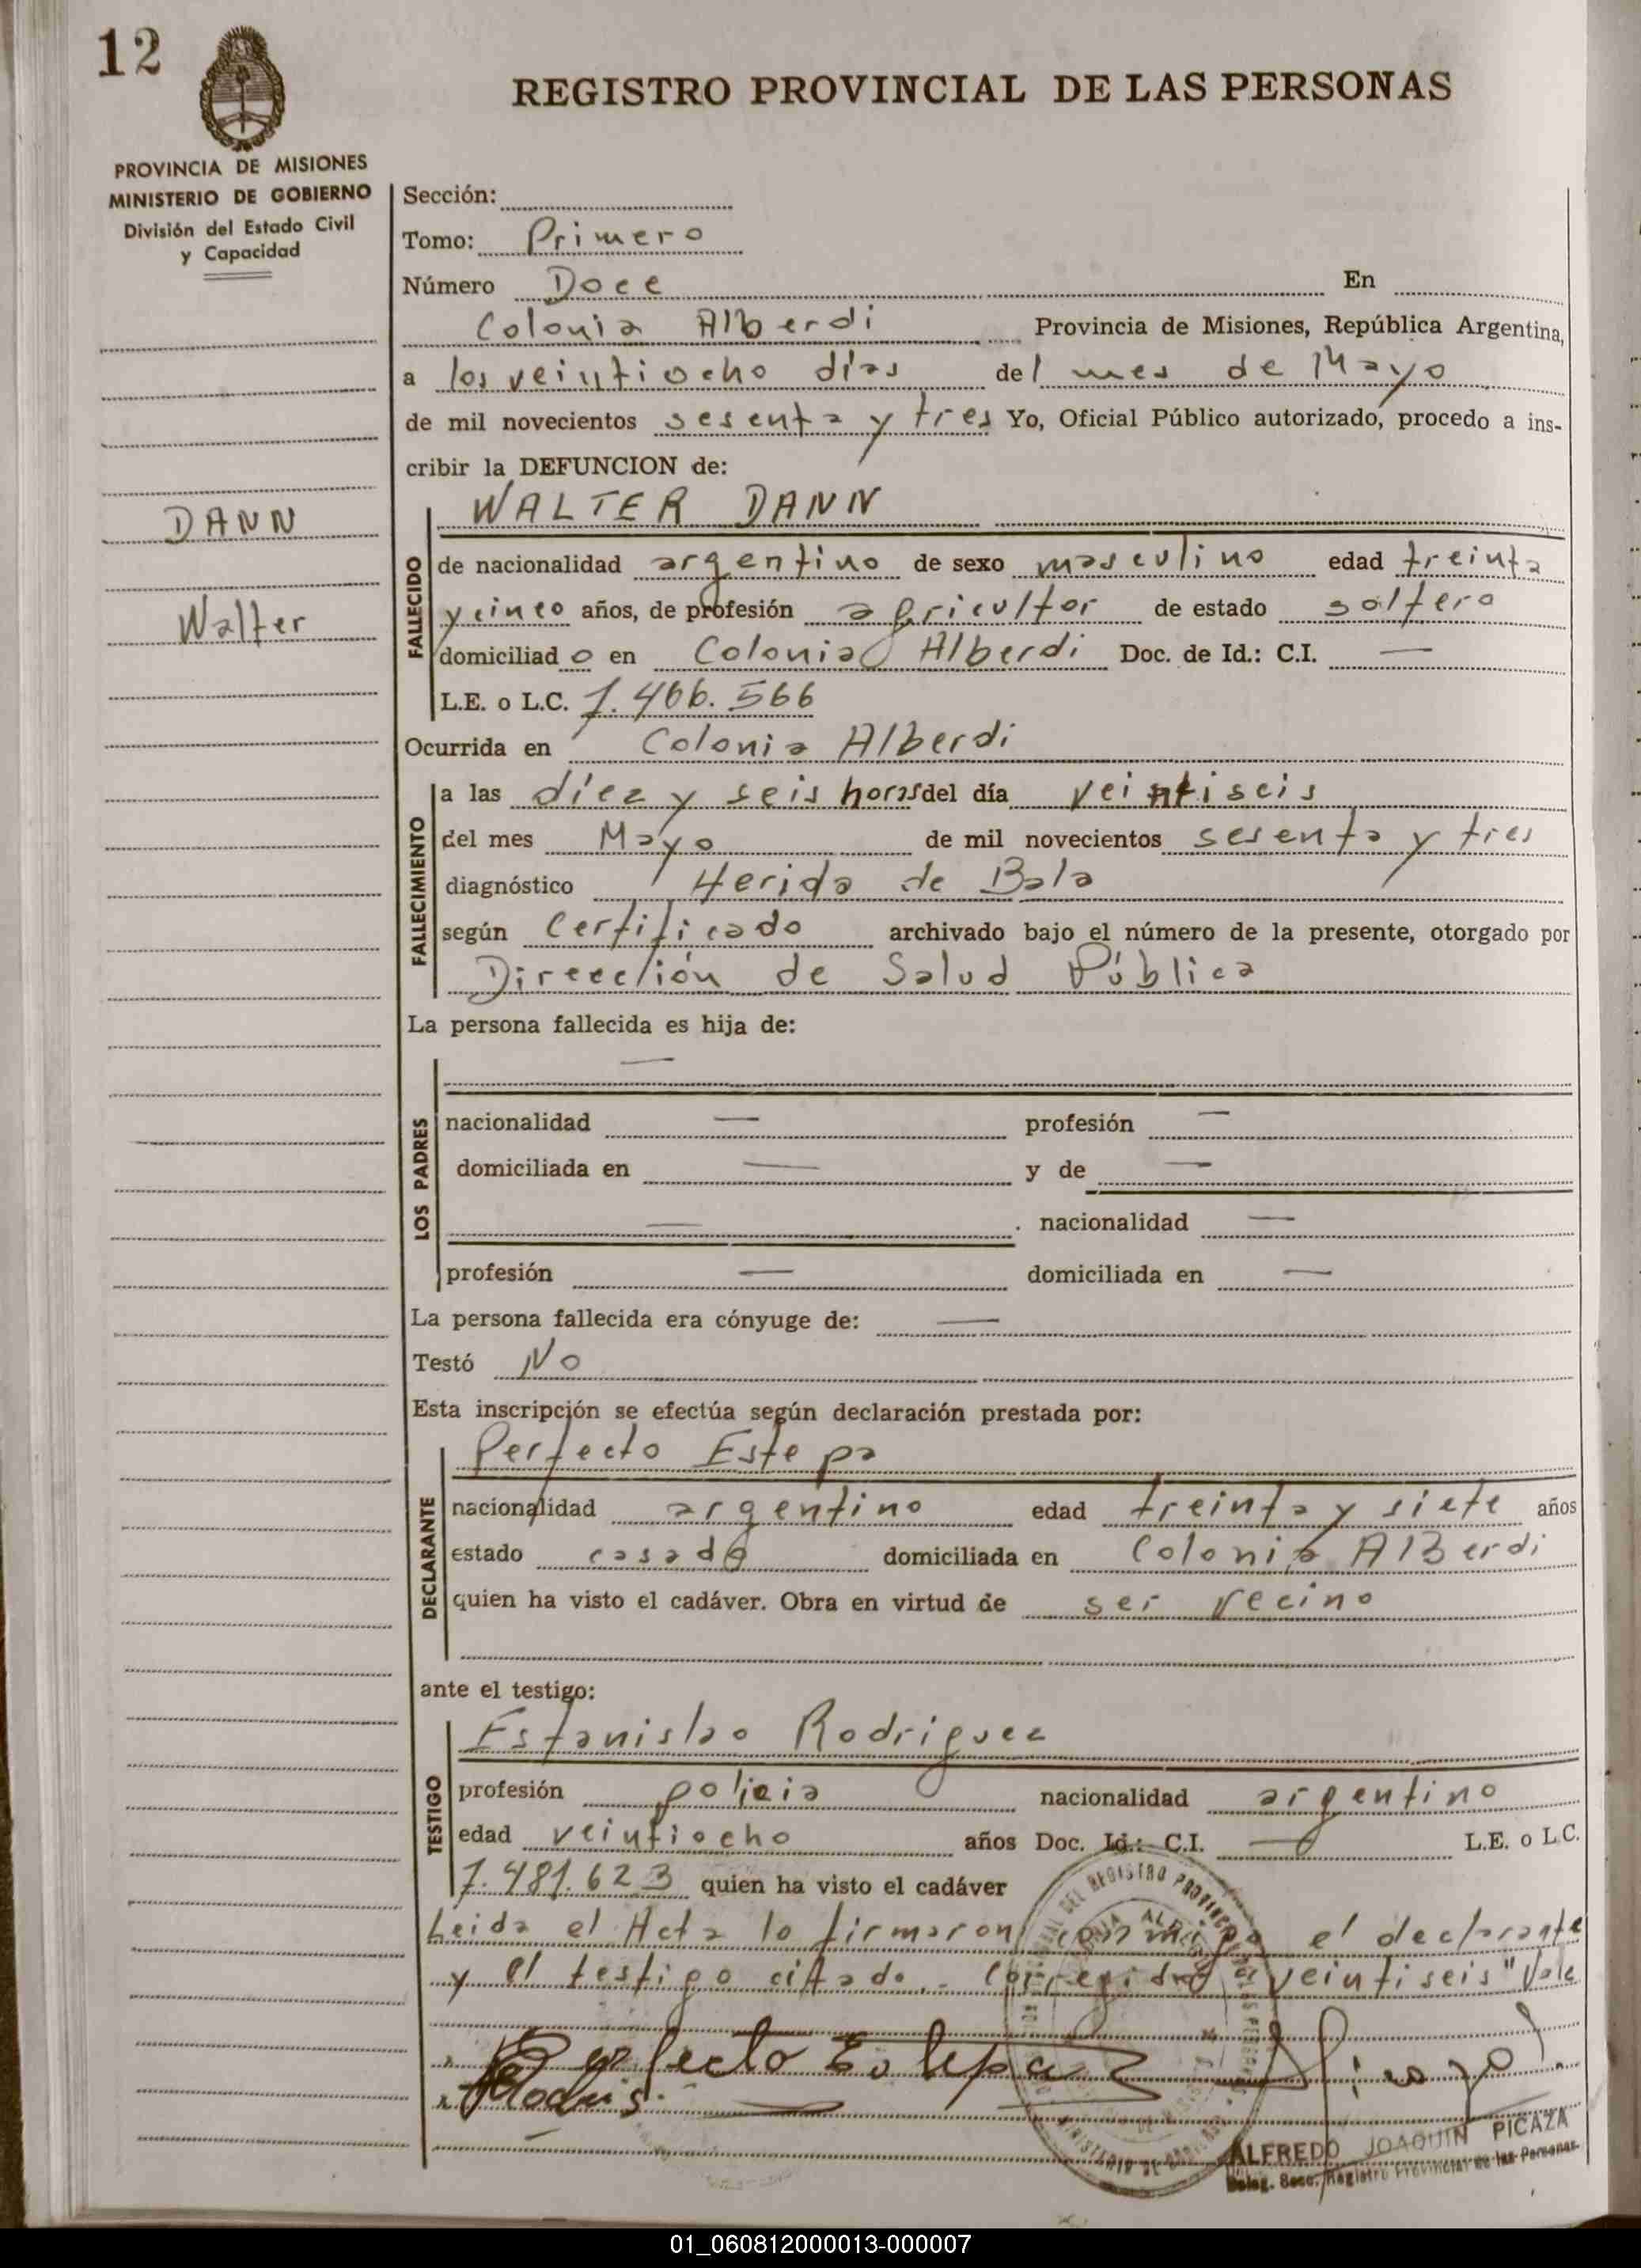 12
REGISTRO PROVINCIAL DE LAS PERSONAS
PROVINCIA DE MISIONES
MINISTERIO DE GOBIERNO
División del Estado Civil
y Capacidad
DANN
Walter
Sección:
Tomo: Primero
Número Doce En
Colonia Alberdi Provincia de Misiones, República Argentina,
a los veintiocho días del mes de Mayo
de mil novecientos sesenta y tres Yo, Oficial Público autorizado, procedo a ins-
cribir la DEFUNCION de:
FALLECIDO
WALTER DANN
de nacionalidad argentino de sexo masculino edad treinta
y cinco años, de profesión agricultor de estado soltero
domiciliado en Colonia Alberdi Doc. de Id.: C.I. —
L.E. o L.C. 7.466.566
Ocurrida en Colonia Alberdi
FALLECIMIENTO
a las diez y seis horas del día veintiseis
del mes Mayo de mil novecientos sesenta y tres
diagnóstico Herida de Bala
según Certificado archivado bajo el número de la presente, otorgado por
Dirección de Salud Pública
La persona fallecida es hija de:
LOS PADRES
—
nacionalidad — profesión —
domiciliada en — y de —
— . nacionalidad —
profesión — domiciliada en —
La persona fallecida era cónyuge de: —
Testó No
Esta inscripción se efectúa según declaración prestada por:
DECLARANTE
Perfecto Estepa
nacionalidad argentino edad treinta y siete años
estado casado domiciliada en Colonia Alberdi
quien ha visto el cadáver. Obra en virtud de ser vecino
ante el testigo:
TESTIGO
Estanislao Rodriguez
profesión policia nacionalidad argentino
edad veintiocho años Doc. Id.: C.I. — L.E. o L.C.
7.481.623 quien ha visto el cadáver
Leida el Acta lo firmaron conmigo el declarante
y el testigo citado.- Corregido "veintiseis" Vale
Perfecto Estepa
ALFREDO JOAQUIN PICAZA
Deleg. Secc. Registro Provincial de las Personas
01_060812000013-000007